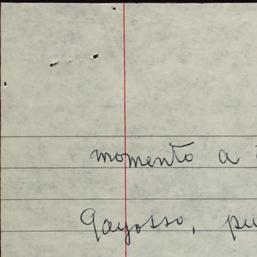 momento a
Gayosso, pu